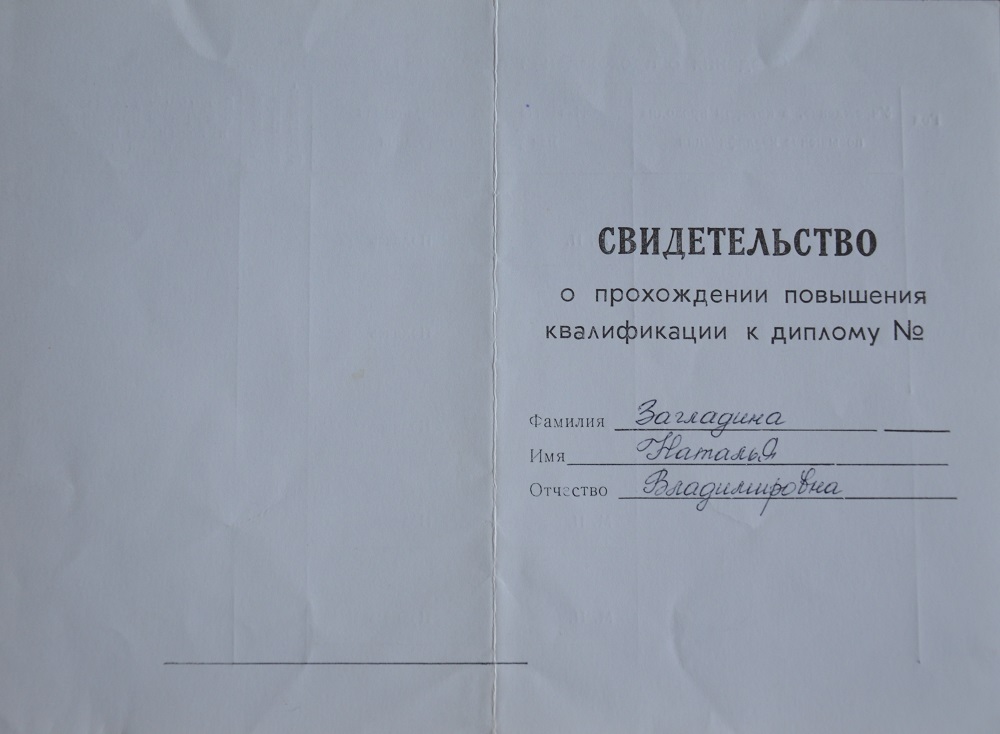 СВИДЕТЕЛЬСТВО
о прохождении повышения
квалификации к диплому №
Фамилия Загладина
Имя Наталья
Отчество Владимировна